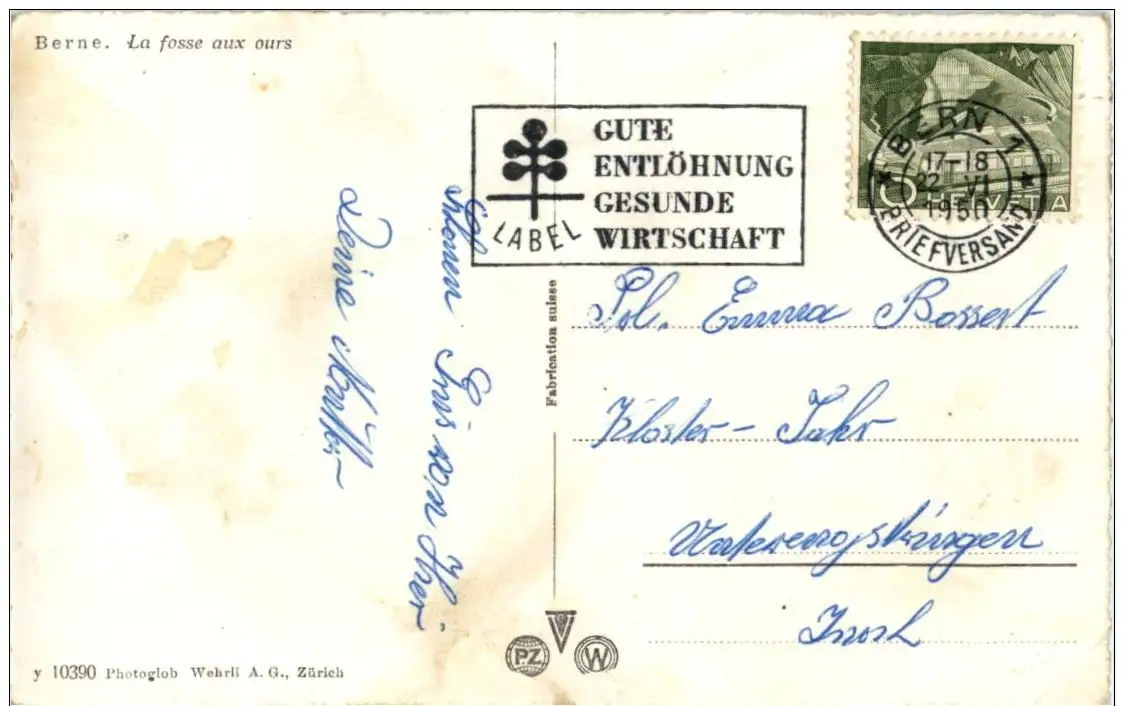 Berne. La fosse aux ours
GUTE
ENTLÖHNUNG
GESUNDE
WIRTSCHAFT
LABEL
HELVETIA
BERN 1
17-18
22 VI
1950
BRIEFVERSAND
Deine Mutter
Gruss von
Fabrication suisse
Frl. Emma Bossert
Kloster-Fahr
Unterengstringen
PZ
W
y 10390 Photoglob Wehrli A. G., Zürich